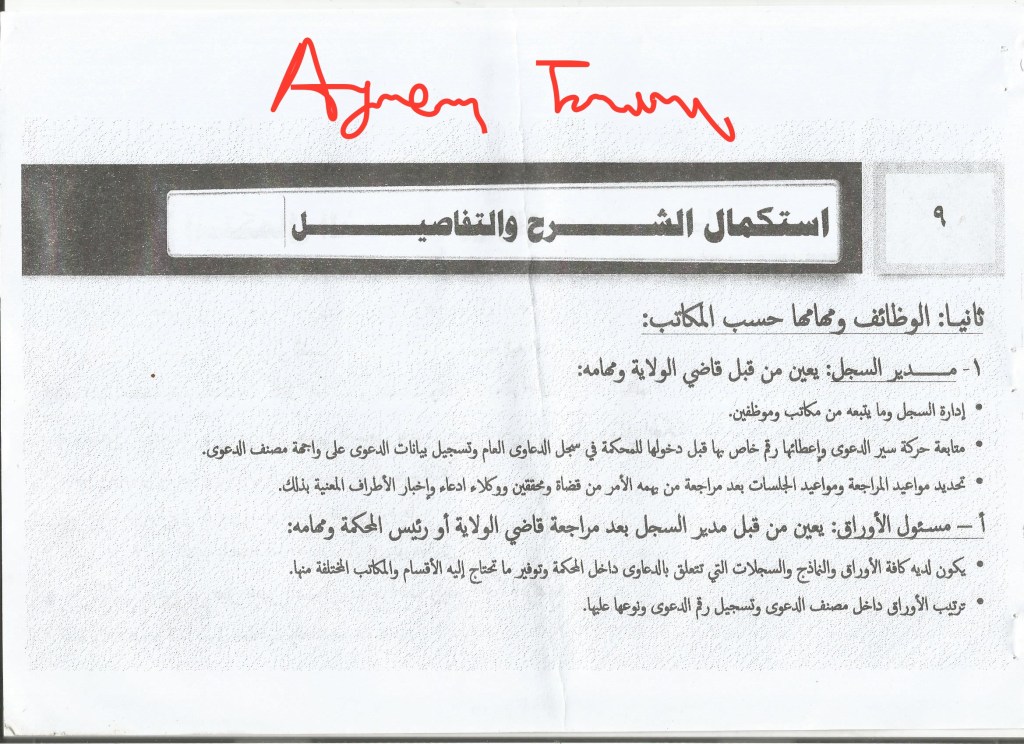 ٩
استكمال الشرح والتفاصيل
ثانيا: الوظائف ومهامها حسب المكاتب:
١- مدير السجل: يعين من قبل قاضي الولاية ومهامه:
• إدارة السجل وما يتبعه من مكاتب وموظفين.
• متابعة حركة سير الدعوى وإعطائها رقم خاص بها قبل دخولها للمحكمة في سجل الدعاوى العام وتسجيل بيانات الدعوى على واجهة مصنف الدعوى.
• تحديد مواعيد المراجعة ومواعيد الجلسات بعد مراجعة من يهمه الأمر من قضاة ومحققين ووكلاء ادعاء وإخبار الأطراف المعنية بذلك.
أ – مسئول الأوراق: يعين من قبل مدير السجل بعد مراجعة قاضي الولاية أو رئيس المحكمة ومهامه:
• يكون لديه كافة الأوراق والنماذج والسجلات التي تتعلق بالدعاوى داخل المحكمة وتوفير ما تحتاج إليه الأقسام والمكاتب المختلفة منها.
• ترتيب الأوراق داخل مصنف الدعوى وتسجيل رقم الدعوى ونوعها عليها.